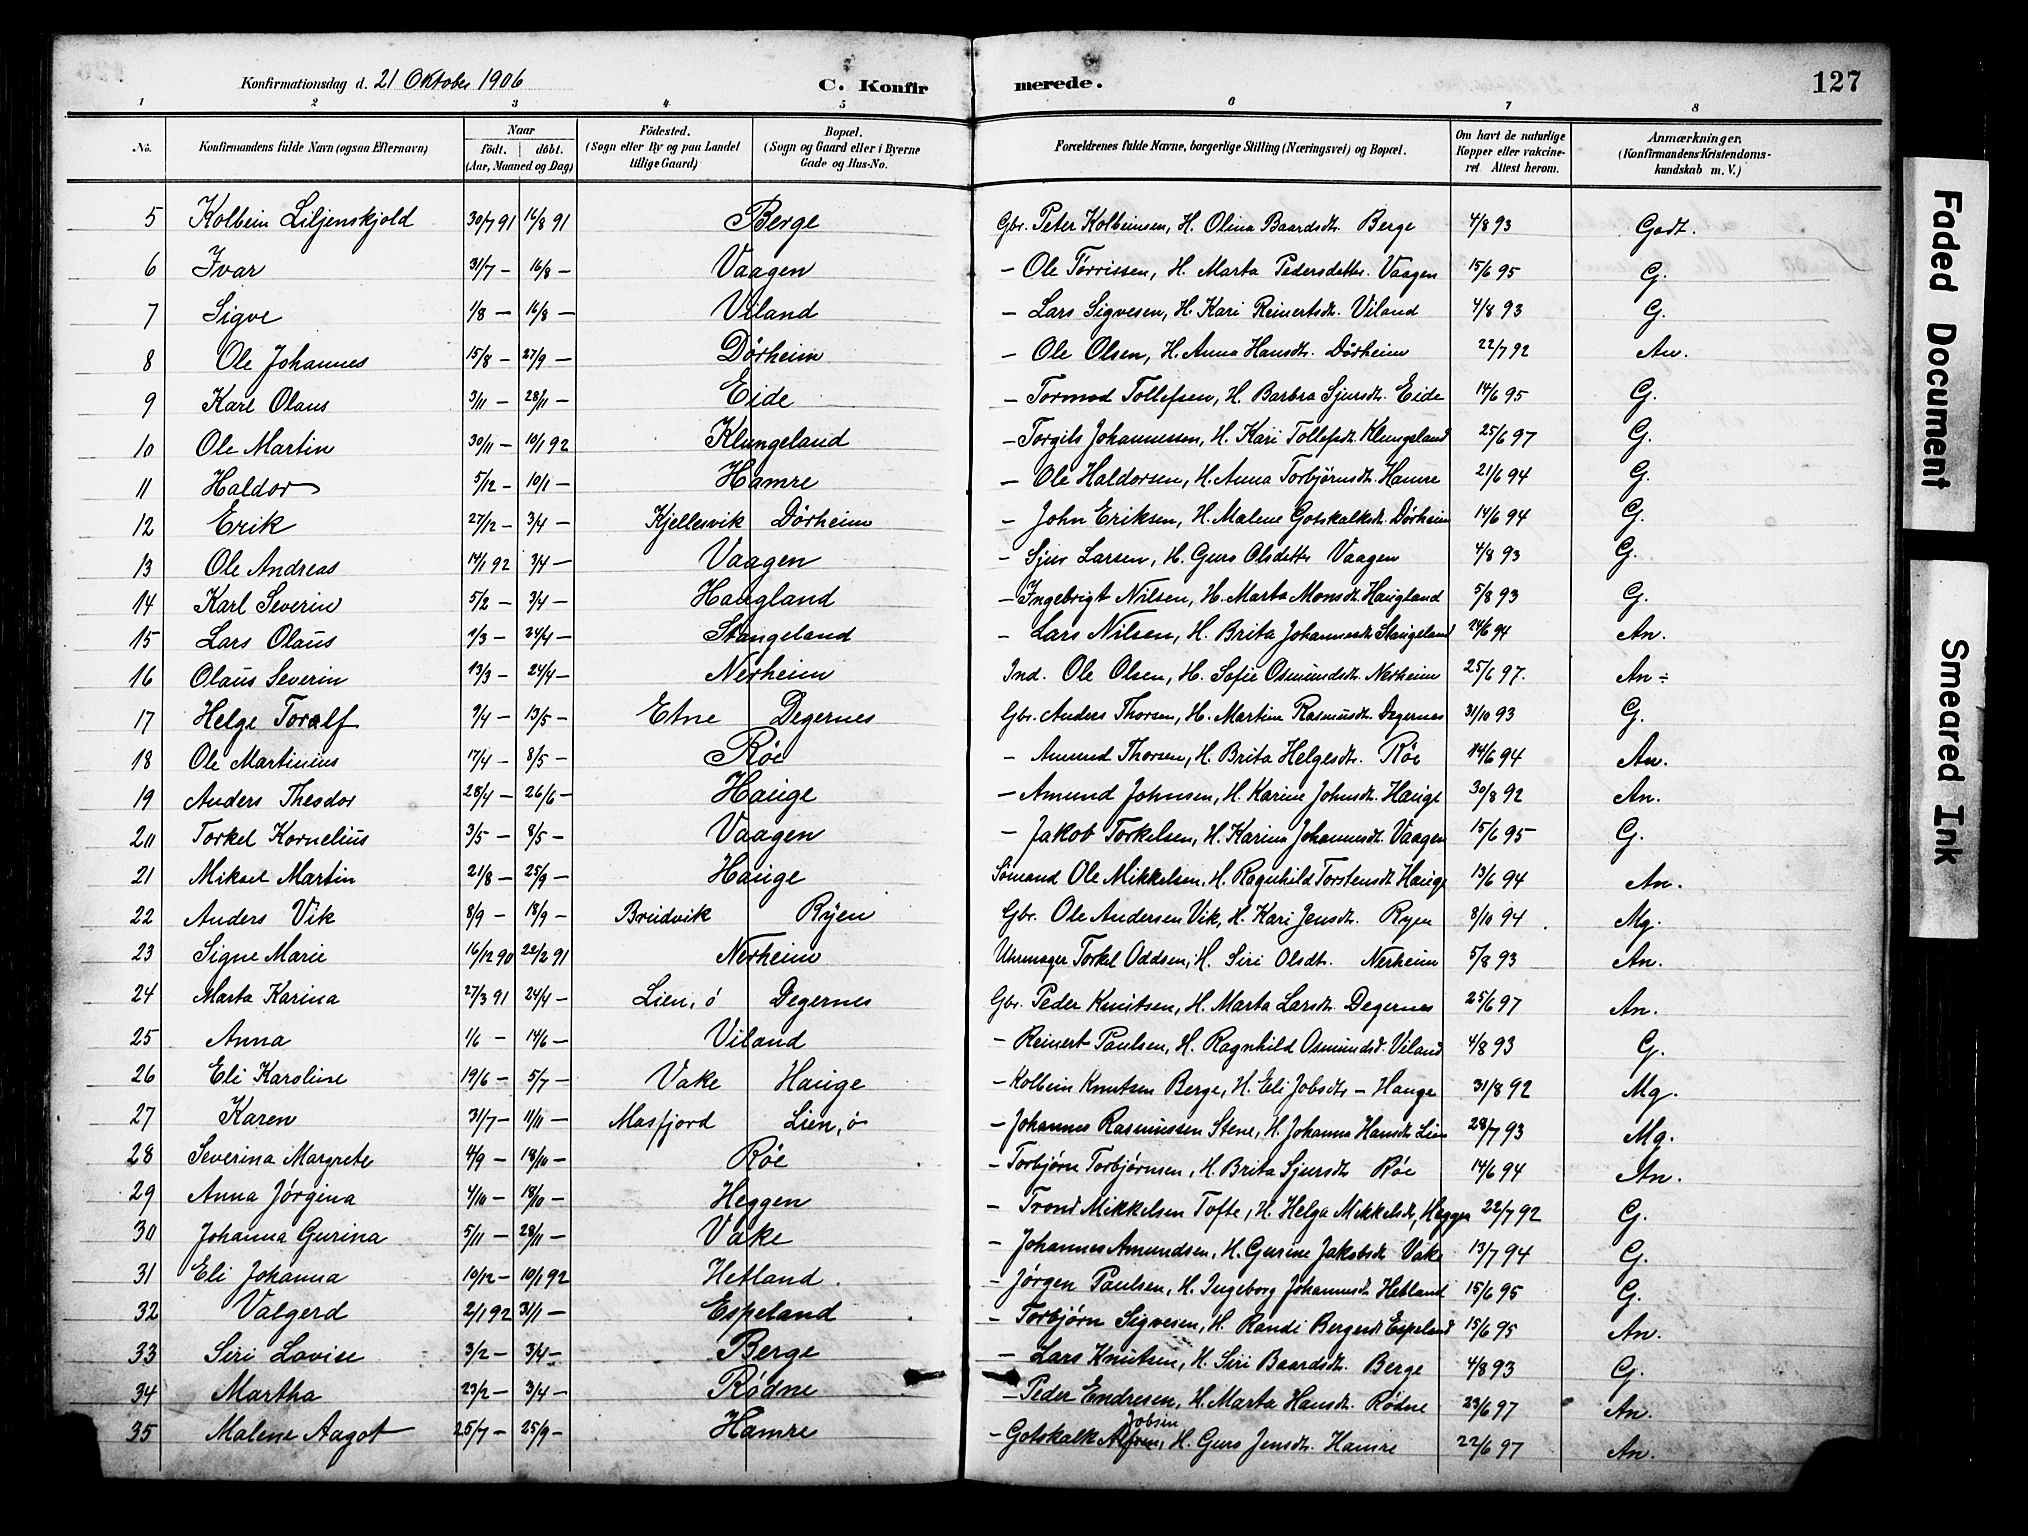 Konfirmationsdag d. 21 Oktober 1906 C. Konfirmerede. 127
1 2 3 4 5 6 7 8
No. Konfirmandens fulde Navn (ogsaa Efternavn) Naar født. døbt. (Aar, Maaned og Dag) Födested. (Sogn eller By og paa Landet tillige Gaard) Bopæl. (Sogn og Gaard eller i Byerne Gade og Hus-No. Forældrenes fulde Navne, borgerlige Stilling (Næringsvei) og Bopæl. Om havt de naturlige Kopper eller vakcineret. Attest herom. Anmærkninger, (Konfirmandens Kristendomskundskab m. V.)
5 Kolbein Liljenskjold 30/7 91 16/8 91 Berge Gbr. Peter Kolbeinsen, H. Olina Baardsdtr. Berge 4/8 93 Godt.
6 Ivar 31/7 — 16/8 — Vaagen — Ole Tørrissen, H. Marta Pedersdatter Vaagen 15/6 95 G.
7 Sigve 1/8 — 16/8 — Viland — Lars Sigvesen, H. Kari Reinertsdtr. Viland 4/8 93 G.
8 Ole Johannes 15/8 — 27/9 — Dørheim — Ole Olsen, H. Anna Hansdtr. Dørheim 22/7 92 An.
9 Karl Olaus 3/11 — 28/11 — Eide — Tormod Tollefsen, H. Barbra Sjursdtr. Eide 14/6 95 G.
10 Ole Martin 30/11 — 10/1 92 Klungeland — Torgils Johannessen, H. Kari Tollefsdtr. Klungeland 25/6 97 G.
11 Haldor 5/12 — 10/1 — Hamre — Ole Haldorsen, H. Anna Torbjørnsdtr. Hamre 21/6 94 G.
12 Erik 27/12 — 3/4 — Kjellesvik Dørheim — John Eriksen, H. Malene Gotskalksdtr. Dørheim 14/6 94 G.
13 Ole Andreas 14/1 92 3/4 — Vaagen — Sjur Larsen, H. Guro Olsdatter Vaagen 4/8 93 G.
14 Karl Severin 5/2 — 3/4 — Haugland — Ingebrigt Nilsen, H. Marta Monsdtr. Haugland 5/8 93 G.
15 Lars Olaus 1/3 — 24/4 — Stangeland — Lars Nilsen, H. Brita Johannesdtr Stangeland 24/6 94 An.
16 Olaus Severin 13/3 — 24/4 — Nerheim Ind. Ole Olsen, H. Sofie Osmundsdtr. Nerheim 25/6 97. An ÷
17 Helge Toralf 9/4 — 13/5 — Etne Degernes Gbr. Anders Thorsen, H. Martine Rasmusdtr. Degernes 31/10 93 G.
18 Ole Martinius 17/4 — 8/5 — Røe — Amund Thorsen, H. Brita Helgesdtr. Røe 14/6 94 An.
19 Anders Theodor 28/4 — 26/6 — Hauge — Amund Johnsen, H. Karine Johnsdtr. Hauge 30/8 92 An.
20 Torkel Kornelius 3/5 — 8/5 — Vaagen — Jakob Torkelsen, H. Karina Johannesdtr. Vaagen 15/6 95 G.
21 Mikael Martin 21/8 — 25/9 — Hauge Sømand Ole Mikkelsen, H. Ragnhild Torstensdtr Hauge 13/6 94 An.
22 Anders Vik 8/9 — 18/9 — Brudvik Ryen Gbr. Ole Andersen Vik, H. Kari Jensdtr. Ryen 8/10 94 Mg.
23 Signe Marie 16/12 90 22/2 91 Nerheim Uhrmager Torkel Oddsen, H. Siri Olsdtr. Nerheim 5/8 93 An.
24 Marta Karina 27/3 91 24/4 — Lien, ø Degernes Gbr. Peder Knutsen, H. Marta Larsdtr. Degernes 25/6 97 An.
25 Anna 1/6 — 14/6 — Viland — Reinert Paulsen, H. Ragnhild Osmundsd. Viland 4/8 93 G.
26 Eli Karoline 19/6 — 5/7 — Vake Hauge — Kolbein Knutsen Berge, H. Eli Jobsdtr — Hauge 31/8 92 Mg.
27 Karen 31/7 — 1/11 — Masfjord Lien, ø — Johannes Rasmussen Stene, H. Johanna Hansdtr Lien 28/7 93 Mg.
28 Severina Margrete 4/9 — 18/10 — Røe — Torbjørn Torbjørnsen, H. Brita Sjursdtr Røe 14/6 94 An.
29 Anna Jørgina 4/10 — 18/10 — Heggen — Trond Mikkelsen Tofte, H. Helga Mikkelsdtr, Heggen 22/7 92 G.
30 Johanna Gurina 5/11 — 28/11 — Vake — Johannes Amundsen, H. Gurine Jakobsdtr Vake 13/7 94 G.
31 Eli Johanna 10/12 — 10/1 92 Hetland. — Jørgen Paulsen, H. Ingeborg Johannesdtr Hetland 15/6 95 G.
32 Valgerd 2/1 92 31/1 — Espeland — Torbjørn Sigvesen, H. Randi Bergesdtr Espeland 15/6 95 An.
33 Siri Lovise 3/2 — 3/4 — Berge — Lars Knutsen, H. Siri Baardsdtr. Berge 4/8 93 G.
34 Martha 23/2 — 3/4 — Rødne — Peder Endresen, H. Marta Hansdtr. Rødne 23/6 97 An.
35 Malene Aagot 25/7 — 25/9 — Hamre — Gotskalk Jobsen, H. Guro Jensdtr. Hamre 22/6 97 An.
Faded Document
Smeared Ink